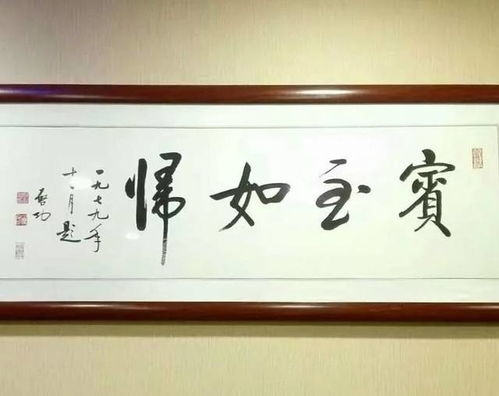 賓至如歸
一九七九年
十一月題
啓功